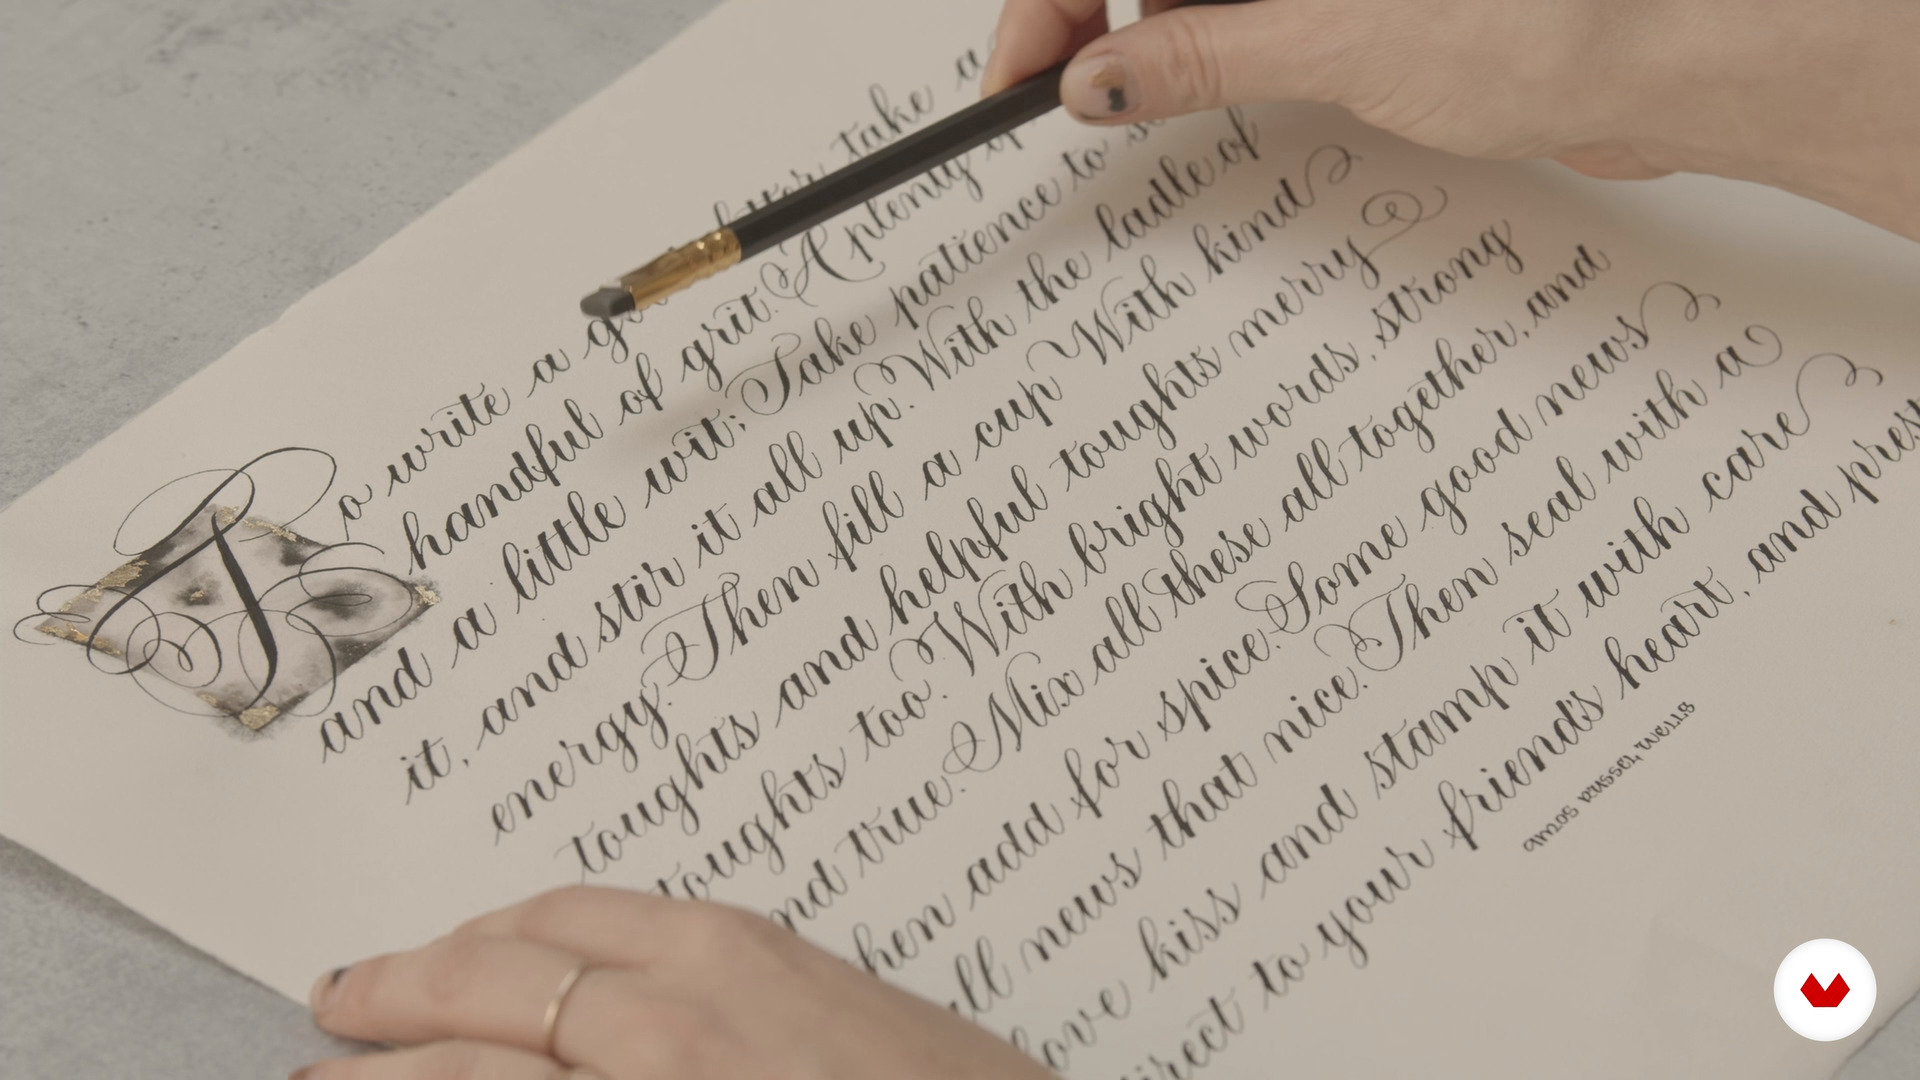 To write a take a
handful of grit. A plenty of
and a little wit; Take patience to
it, and stir it all up. With the ladle of
energy. Then fill a cup With kind
toughts and helpful toughts merry
toughts too. With bright words, strong
and true. Mix all these all together, and
then add for spice. Some good news
all news that nice. Then seal with a
love kiss and stamp it with care
direct to your friend's heart, and
amos russel wells